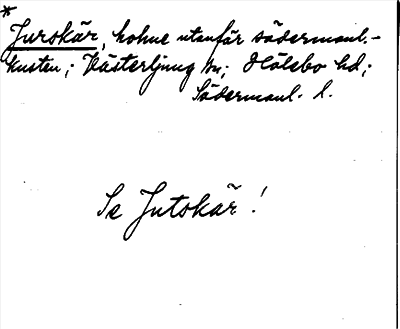 *
Jurskär, holme utanför södermanl.-
kusten; Västerljung sn; Hölebo hd;
Södermanl. l.
Se Jutskär!